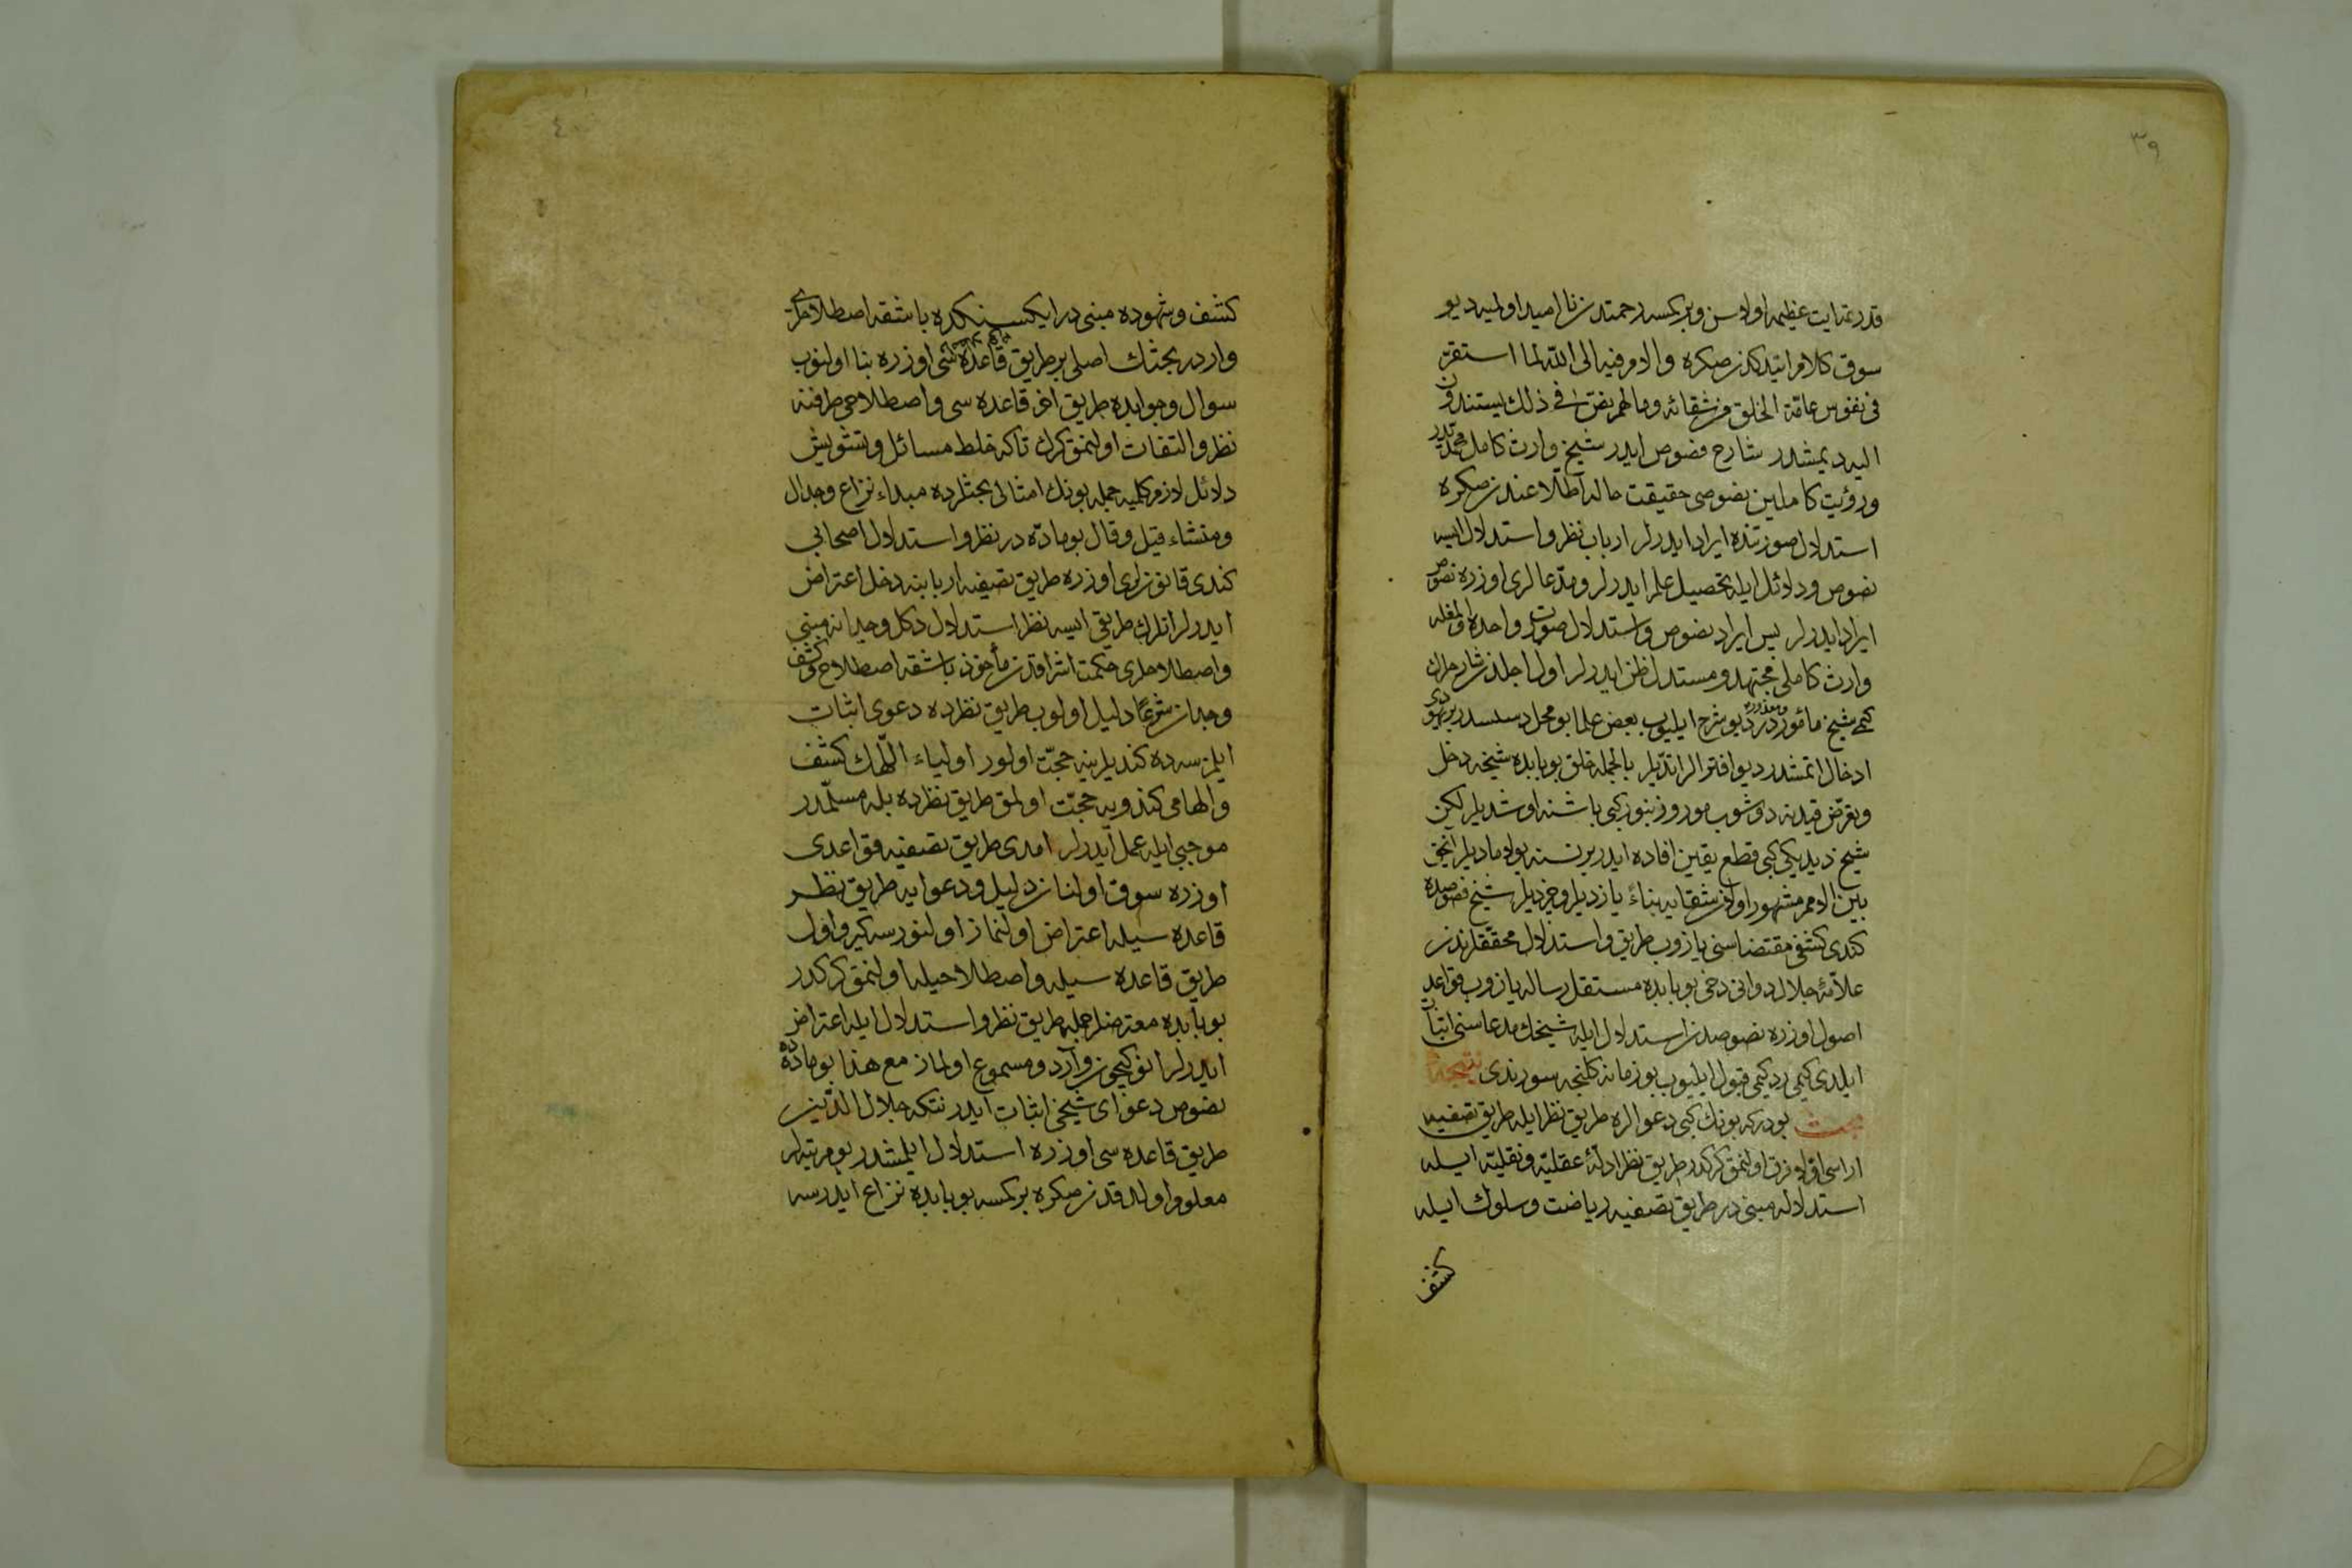 ٣٩
قدر عنايت عظيمه اولاسن وبر كسه رحمتدن نا اميد اولميه ديو
سوق كلام ايتدكدنصكره والامر فيه الى الله لما استقرّ
فى نفوس عامّة الخلق من شقائه ومالهم نصّ فى ذلك يستندون
اليه ديمشدر شارح فصوص ايدر شيخ وارث كامل محمّديدر
ورؤيت كاملين نصوصى حقيقت حاله اطّلاعندنصكره
استدلال صورتنده ايراد ايدرلر ارباب نظر واستدلال ايسه
نصوص ودلائل ايله تحصيل علم ايدرلر ومدّعالرى اوزره نصوص
ايراد ايدرلر پس ايراد نصوص واستدلال صورت واحده اولمغله
وارث كاملى مجتهد ومستدل ظن ايدرلر اول اجلدن شارحلرك
كيمى شيخ مأموردر ومعذوردر ديو شرح ايليوب بعض علما بو محل دسيسه در يهودى
ادخال اتمشدر ديو افترالر ايتديلر بالجمله خلق بو بابده شيخه دخل
وتعرّض قيدينه دوشوب مور وزنبور كبى باشنه اوشديلر لكن
شيخ ديديكى كبى قطع يقين افاده ايدر بر نسنه بولامديلر انجق
بين الامم مشهور اولان شقايه بناءً يازديلر وچزديلر شيخ فصوصده
كندى كشفى مقتضاسنى يازوب طريق واستدلال محقّقلرندن
علاّمۀ جلال دوانى دخى بو بابده مستقل رساله يازوب قواعد
اصول اوزره نصوصدن استدلال ايله شيخك مدعاسنى اثبات
ايلدى كيمى رد كيمى قبول ايليوب بو زمانه كلنجه سورندى نتيجۀ
بحث بودركه بونك كبى دعوالره طريق نظر ايله طريق تصفيه
اراسى اوّلا فرق اولنمق كركدر طريق نظر ادلّۀ عقليّه ونقليّه ايله
استدلاله مبنى در طريق تصفيه رياضت وسلوك ايله
كشف
٤٠
كشف وشهوده مبنى در ايكيسنكده باشقه اصطلاحلرى
واردر بحثك اصلى بر طريق قاعده سى اوزره بنا اولنوب
سوال وجوابده طريق اخر قاعده سى واصطلاحى طرفنه
نظر والتفات اولنمق كرك تاكه خلط مسائل وتشويش
دلائل لازم كلميه جمله بونك امثالى بحثلرده مبداء نزاع وجدال
ومنشاء قيل وقال بو مادّه در نظر واستدلال اصحابى
كندى قانونلرى اوزره طريق تصفيه اربابنه دخل اعتراض
ايدرلر انلرك طريقى ايسه نظر استدلال دكل وجدانه مبنى
واصطلاحلرى حكمت اشراقدن مأخوذ باشقه اصطلاح وكشف
وجدان شرعًا دليل اولوب طريق نظرده دعوى اثبات
ايلمزسه ده كنديلرينه حجّت اولور اولياء اللّهك كشف
والهامى كندويه حجّت اولمق طريق نظرده بله مسلّمدر
موجبى ايله عمل ايدرلر امدى طريق تصفيه قواعدى
اوزره سوق اولنان دليل ودعوايه طريق نظر
قاعده سيله اعتراض اولنماز اولنورسه كيرو اول
طريق قاعده سيله واصطلاحيله اولنمق كركدر
بو بابده معترضلر جمله طريق نظر واستدلال ايله اعتراض
ايدرلر انوكيچون وارد ومسموع اولماز مع هذا بو مادّه ده
نصوص دعواى شيخى اثبات ايدر نتكه جلال الدّين
طريق قاعده سى اوزره استدلال ايلمشدر بو مرتبه لر
معلوم اولدقدنصكره بر كسه بو بابده نزاع ايدرسه